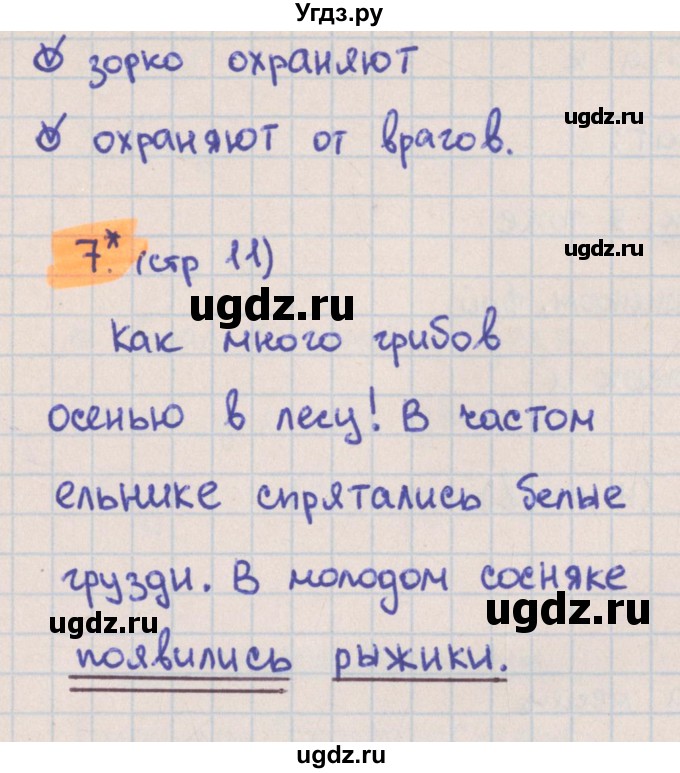 Угдз.ру
зорко охраняют
ugdz.ru
охраняют от врагов.
7.* (стр 11)
ugdz.ru
ugdz.ru
Как много грибов
осенью в лесу! В частом
ельнике спрятались белые
грузди. В молодом сосняке
ugdz.ru
ugdz.ru
появились рыжики.
ugdz.ru